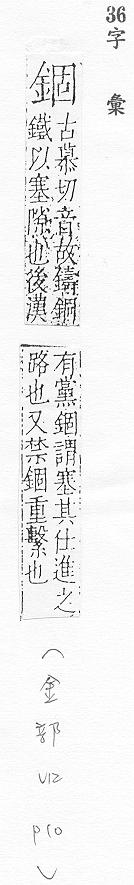 36字彙
錮古慕切音故鑄銅
鐵以塞隙也後漢
有黨錮謂塞其仕進之
路也又禁錮重繫也
(金部 V12 P10)